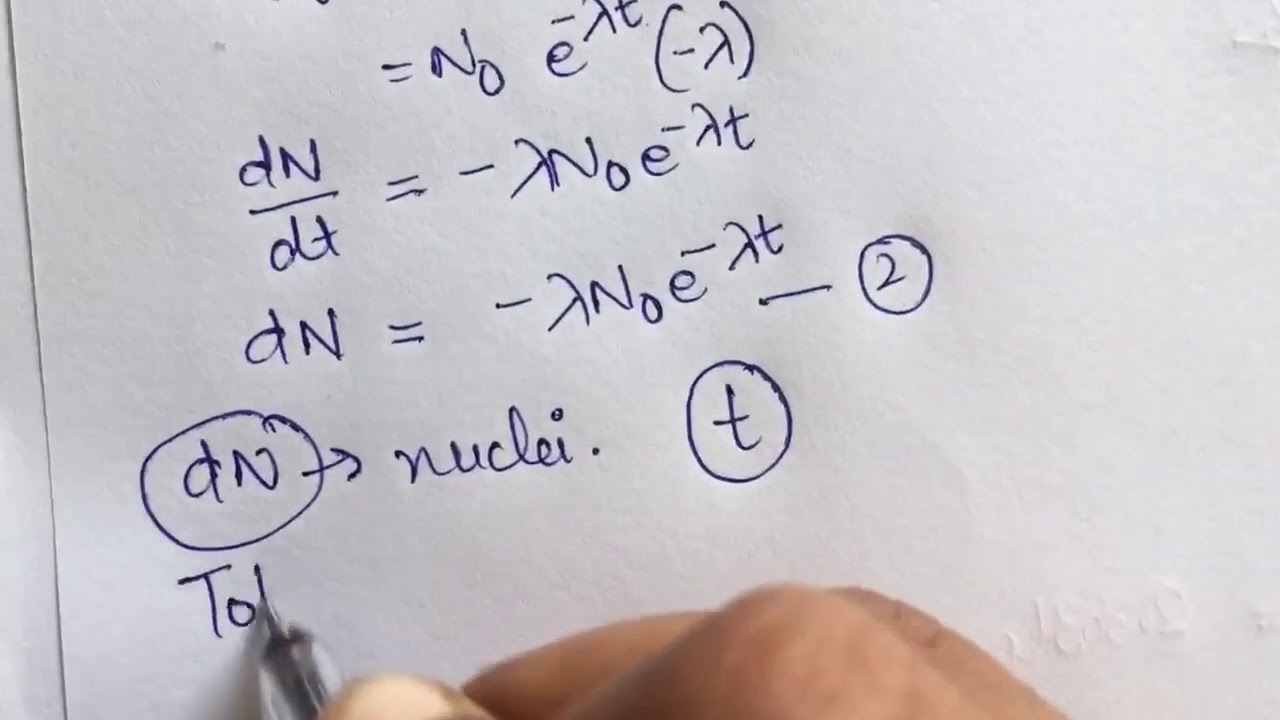 = N₀ e^{-λt} (-λ)
dN/dt = - λN₀e^{-λt}
dN = - λN₀e^{-λt} — ②
dN → nuclei. t